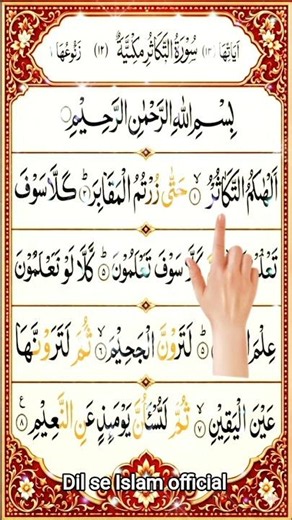 (١٣) سُوْرَةُ التَّكَاثُرِ مَكِّيَّةٌ (١٢)
بِسْمِ اللهِ الرَّحْمٰنِ الرَّحِيْمِ
التَّكَاثُرُ ۙ١ حَتّٰى زُرْتُمُ الْمَقَابِرَ ؕ٢ كَلَّا سَوْفَ
كَلَّا سَوْفَ تَعْلَمُوْنَ ؕ٥ كَلَّا لَوْ تَعْلَمُوْنَ
عِلْمَ ؕ٥ لَتَرَوُنَّ الْجَحِيْمَ ۙ٦ ثُمَّ لَتَرَوُنَّهَا
عَيْنَ الْيَقِيْنِ ۙ٧ ثُمَّ لَتُسْـَٔلُنَّ يَوْمَىِٕذٍ عَنِ النَّعِيْمِ ٨ ع
Dil se Islam official